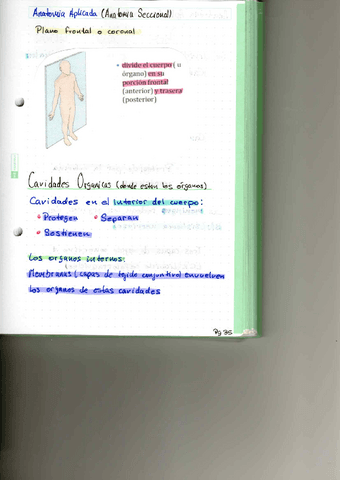 Anatomía Aplicada (Anatomía Seccional)
Plano frontal o coronal
• divide el cuerpo ( u
órgano) en su
porción frontal
(anterior) y trasera
(posterior)
Cavidades Organicas (donde estan los órganos)
Cavidades en el interior del cuerpo:
• Protegen • Separan
• Sostienen
Los organos internos:
Membranas (capas de tejido conjuntivo) envuelven
los organos de estas cavidades